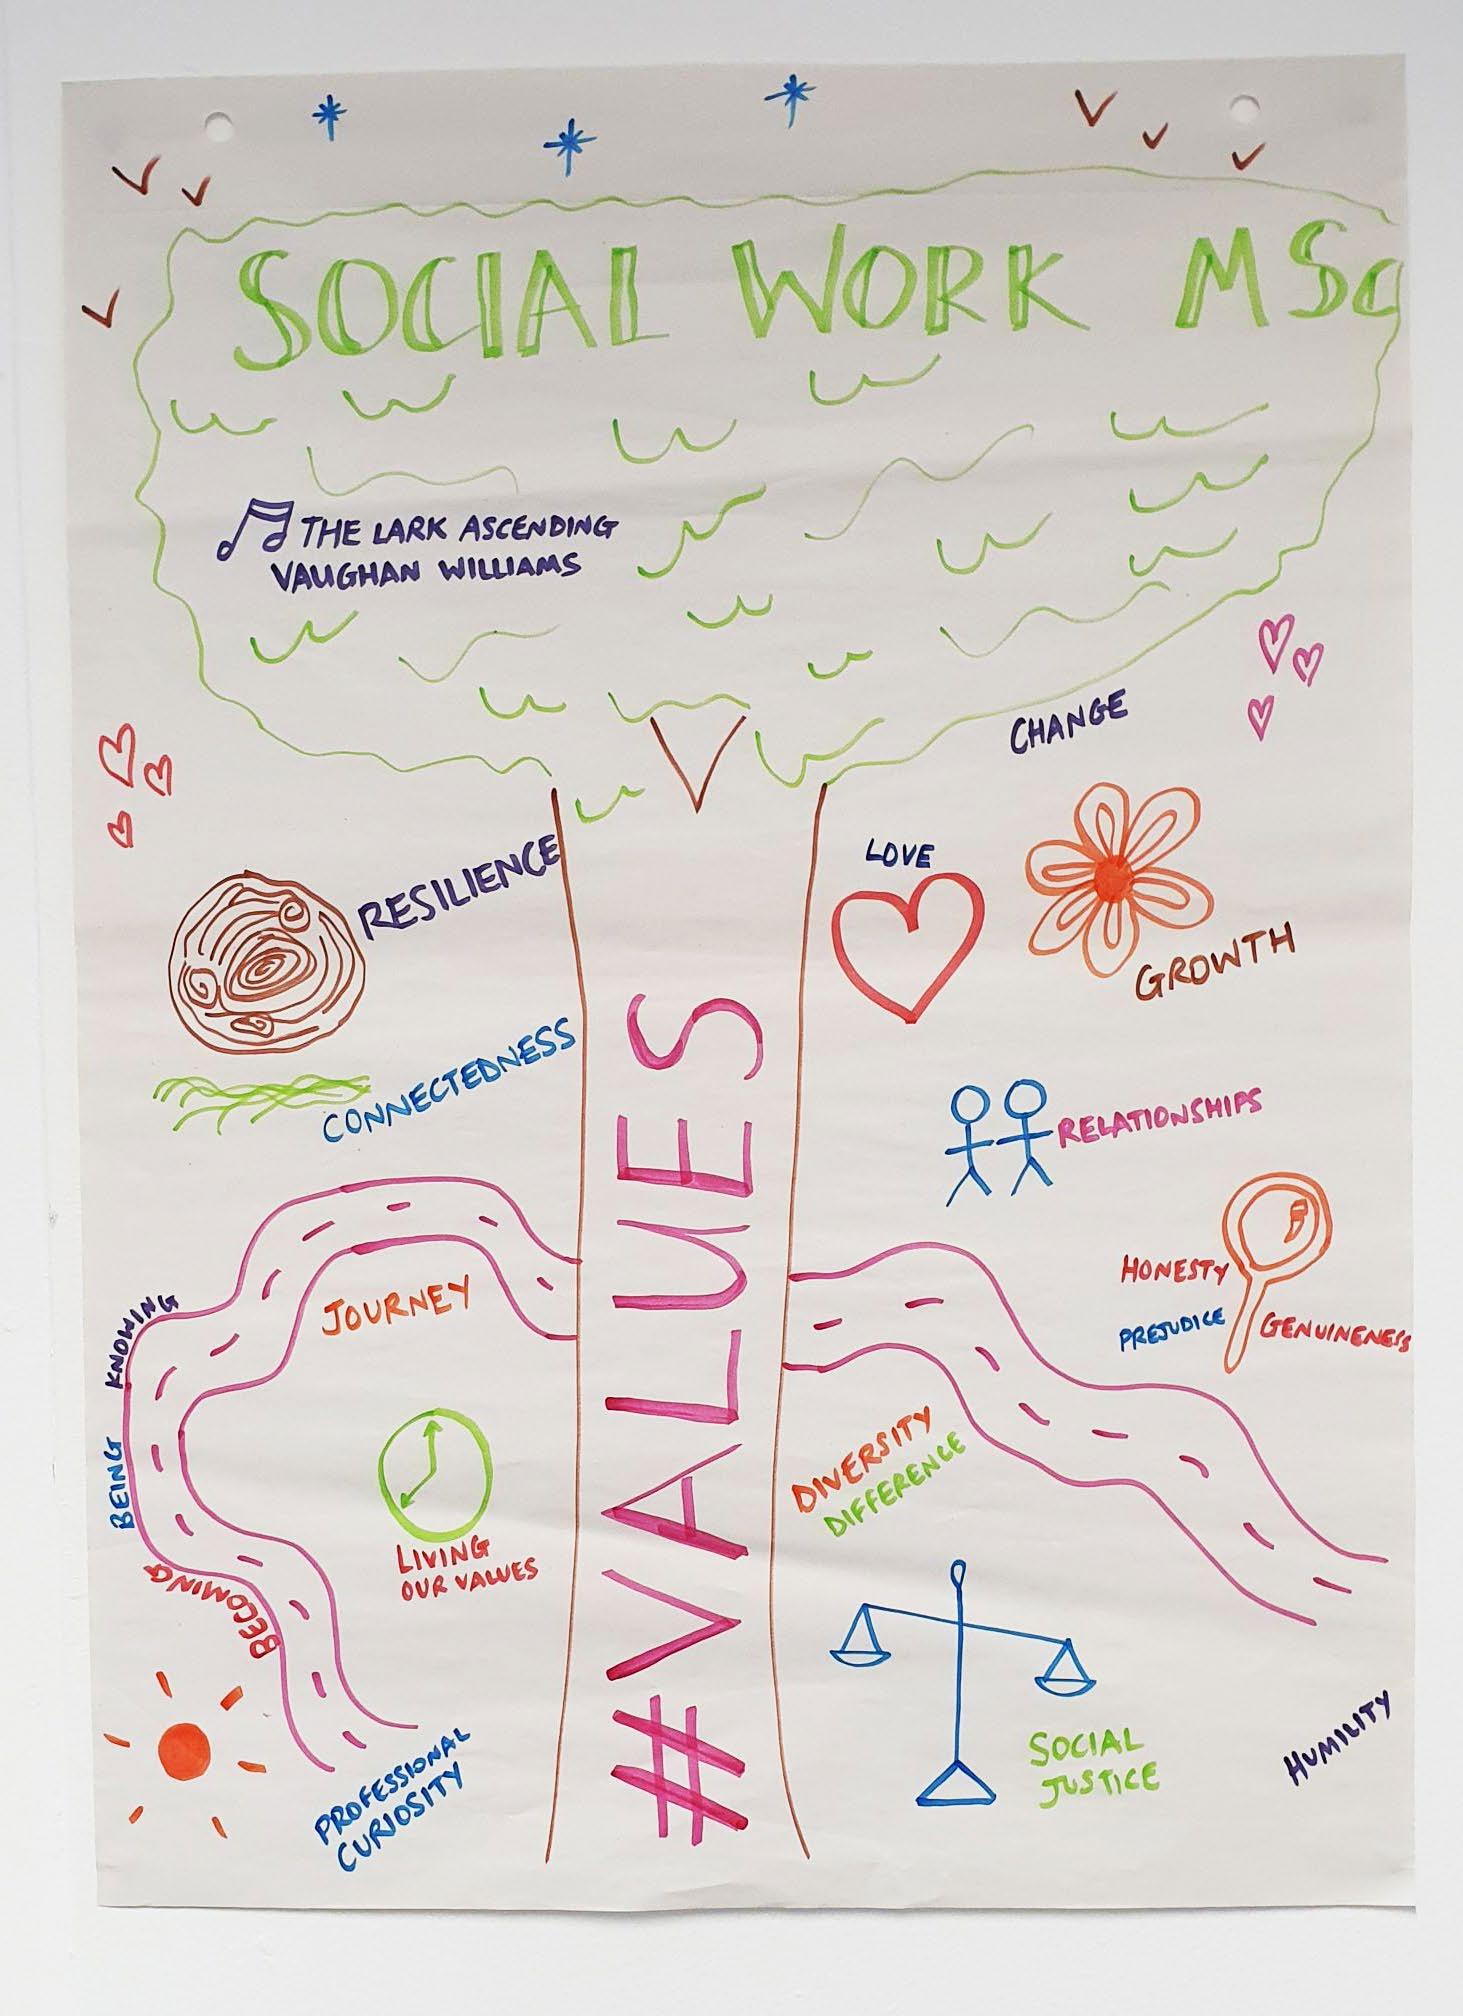 SOCIAL WORK MSc
THE LARK ASCENDING
VAUGHAN WILLIAMS
CHANGE
RESILIENCE
LOVE
GROWTH
CONNECTEDNESS
RELATIONSHIPS
#VALUES
JOURNEY
KNOWING
BEING
BECOMING
HONESTY
PREJUDICE
GENUINENESS
DIVERSITY
DIFFERENCE
LIVING
OUR VALUES
PROFESSIONAL
CURIOSITY
SOCIAL
JUSTICE
HUMILITY